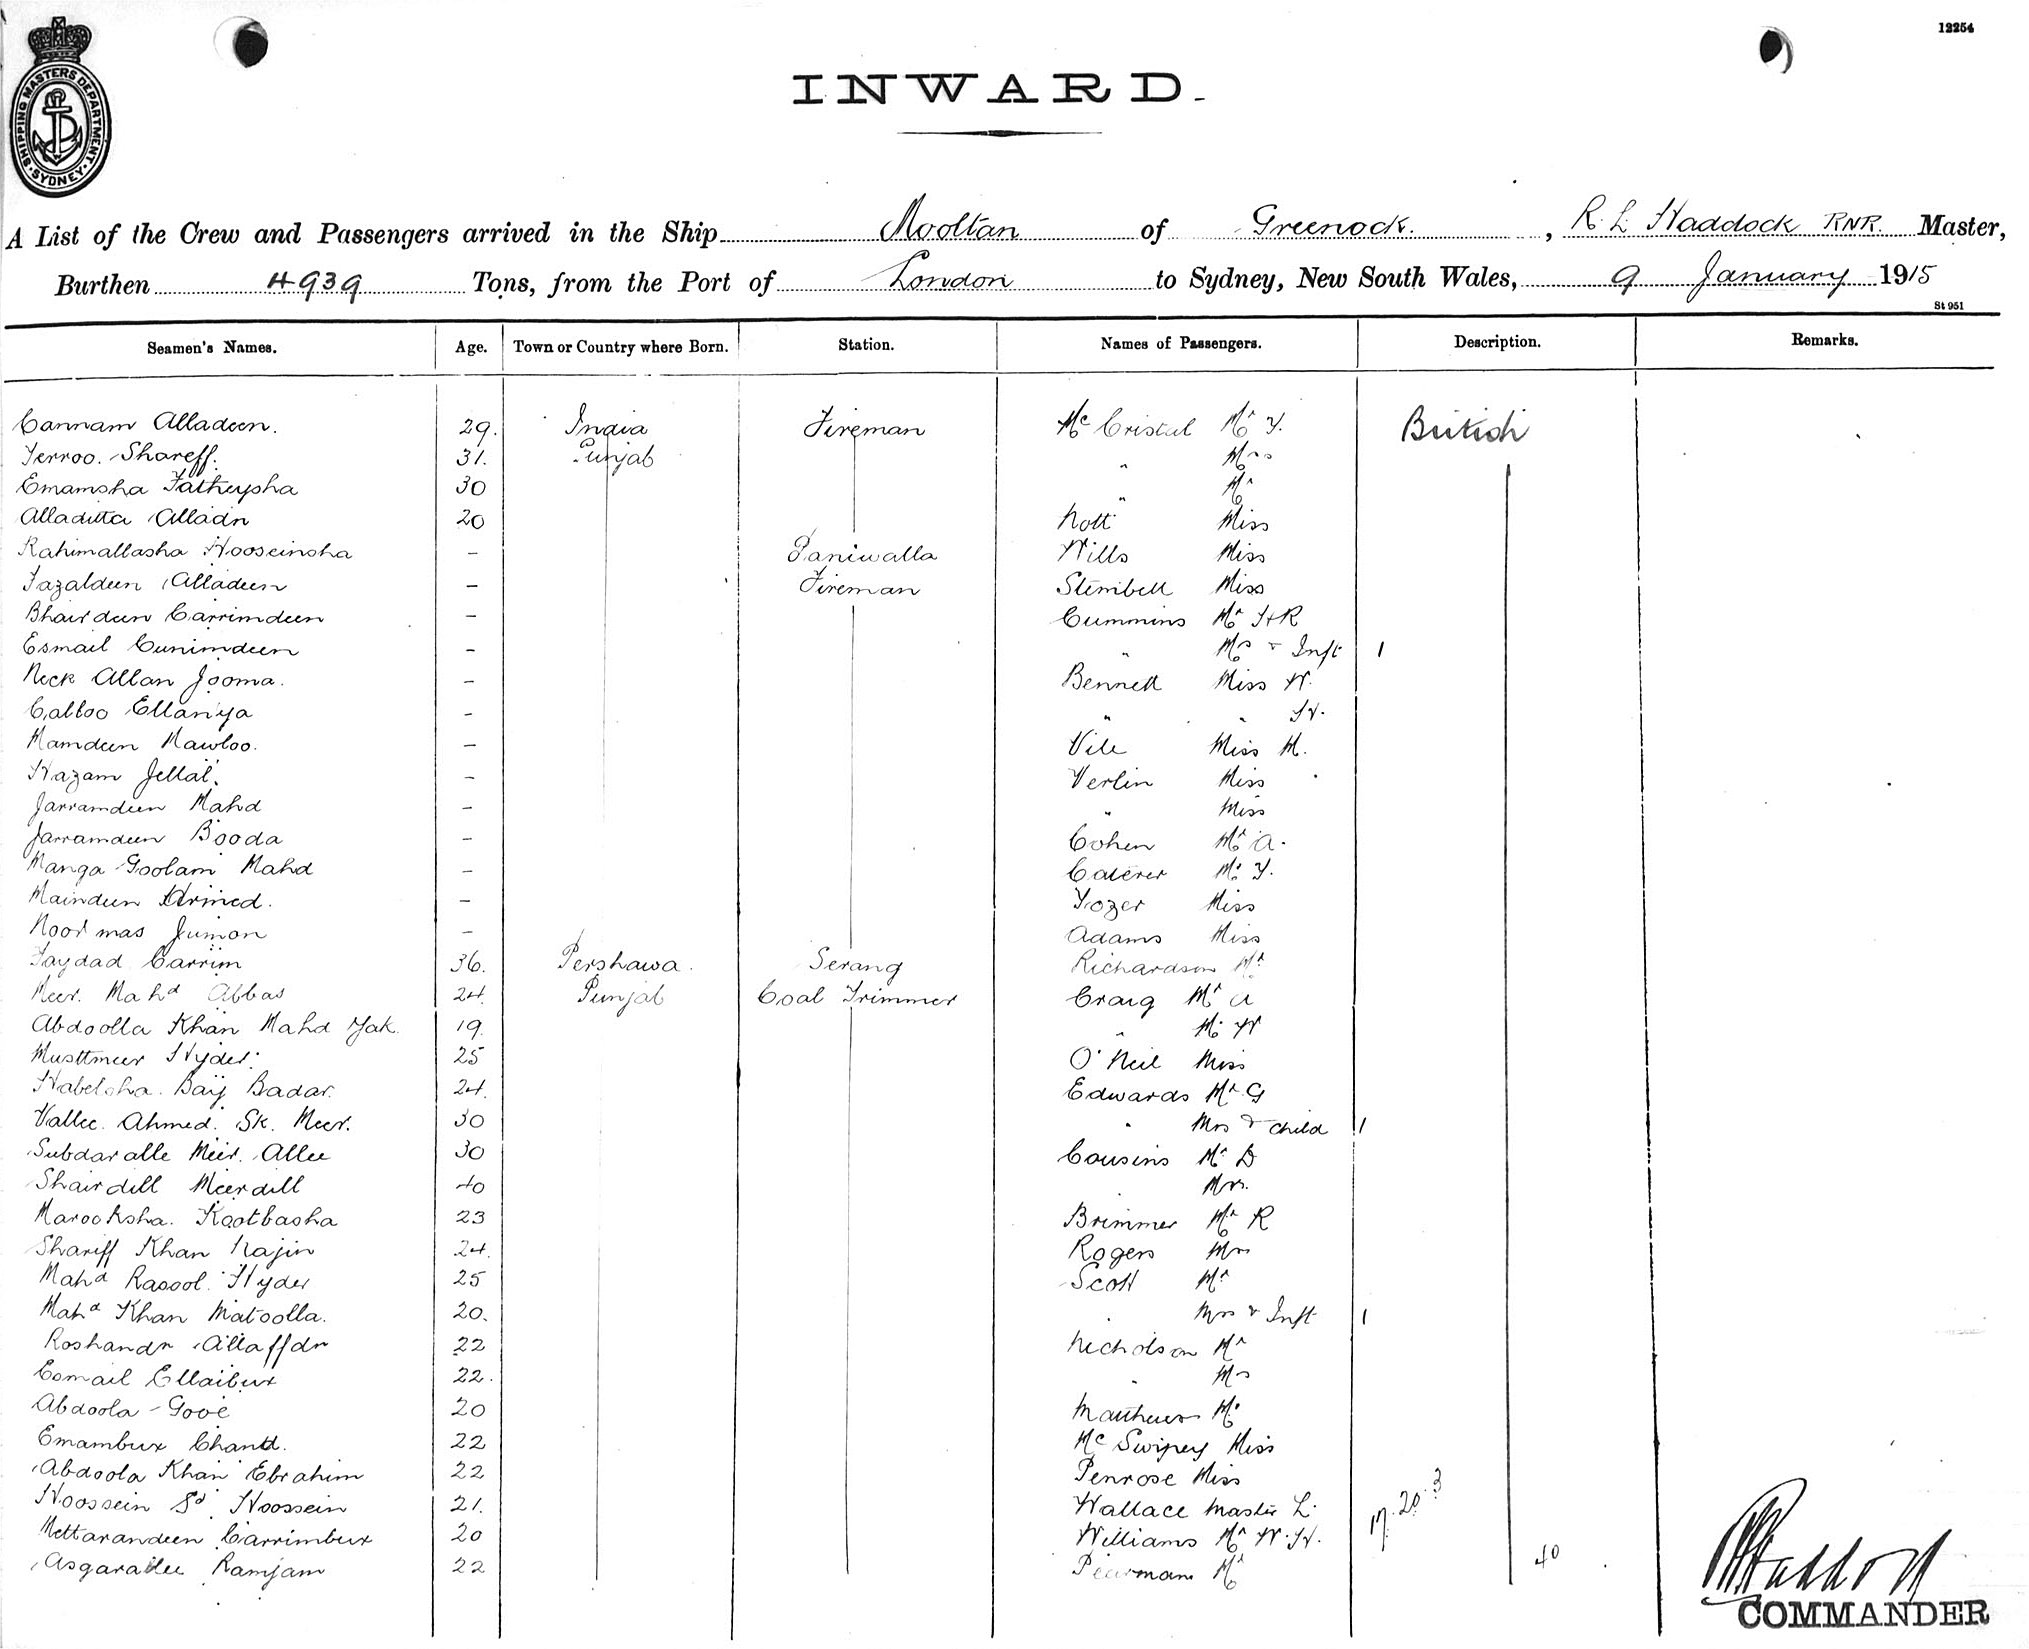 12254
SHIPPING MASTERS DEPARTMENT
SYDNEY
INWARD.
A List of the Crew and Passengers arrived in the Ship Mooltan of Greenock. , R. L. Haddock RNR. Master,
Burthen 4939 Tons, from the Port of London to Sydney, New South Wales, 9 January 1915
St 951
Seamen's Names. Age. Town or Country where Born. Station. Names of Passengers. Description. Remarks.
Cannam Alladeen. 29. India Fireman McCristal Mr T. British
Ferroo. Shareff. 31. Punjab " Mrs
Emamsha Fatheysha 30 " Mr
Alladitta Alladn 20 Nott Miss
Rahimallasha Hooseinsha - Paniwalla Wills Miss
Fazaldeen Alladeen - Fireman Stembell Miss
Bhairdeen Carrimdeen - Cummins Mr H R
Esmail Cunimdeen - " Mrs & Inft 1
Neck Allan Jooma. - Bennett Miss W.
Calloo Ellanya - " " H.
Mamdeen Mawloo. - Vile Miss M.
Hazam Jellal. - Verlin Miss
Jarramdeen Mahd - " Miss
Jarramdeen Booda - Cohen Mr A.
Manga Goolam Mahd - Caterer Mr T.
Maindeen - Tozer Miss
Noor mas Jumon - Adams Miss
Faydad Carrim 36. Pershawa. Serang Richardson Mr
Meer. Mahd Abbas 24. Punjab Coal Trimmer Craig Mr A
Abdoolla Khan Mahd Jak. 19. " Mr W
Musttmeer Hyder. 25 O'Neil Miss
Habelsha. Baij Badar. 24. Edwards Mr G
Vallee. Ahmed. Sk. Meer. 30 " Mrs & child 1
Subdaralle Meer. Allee 30 Cousins Mr D
Shairdill Meerdill 40 Mrs.
Marooksha. Kootbasha 23 Brimmer Mr R
Shariff Khan Najin 24. Rogers Mrs
Mahd Rasool. Hyder 25 Scott Mr
Mahd Khan Matoolla. 20. Mrs & Inft 1
Roshandn Allaffdn 22 Nicholson Mr
Esmail Ellaibux 22. " Mrs
Abdoola Gove 20 Matthews Mr
Emambux Chand. 22 McSwiney Miss
Abdoola Khan Ebrahim 22 Penrose Miss
Hoossein Sd Hoossein 21. Wallace Master L. 17. 20. 3
Mettarandeen Carrimbux 20 Williams Mr W. H.
Asgarallee Ramjam 22 Pearman Mr 40
RHaddock
COMMANDER